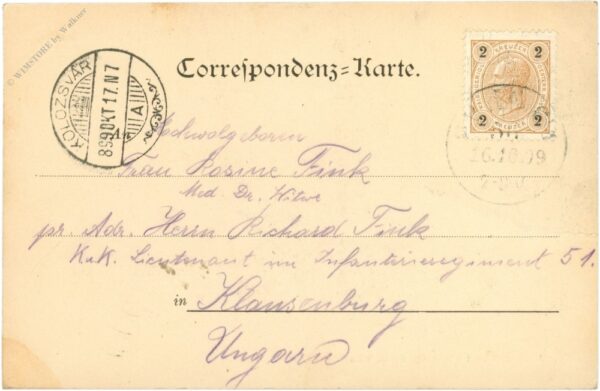 © WIMSTORE by Walkner
KOLOZSVÁR
899 OKT 17. N7
A
Correspondenz-Karte.
2 KREUZER 2
2 2
16.10.99
An Hochwolgeboren
Frau Rosine Fink
Med. Dr. Witwe
pr. Adr. Herrn Richard Fink
K.k. Lieutenant im Infanterieregiment 51.
in Klausenburg
Ungarn